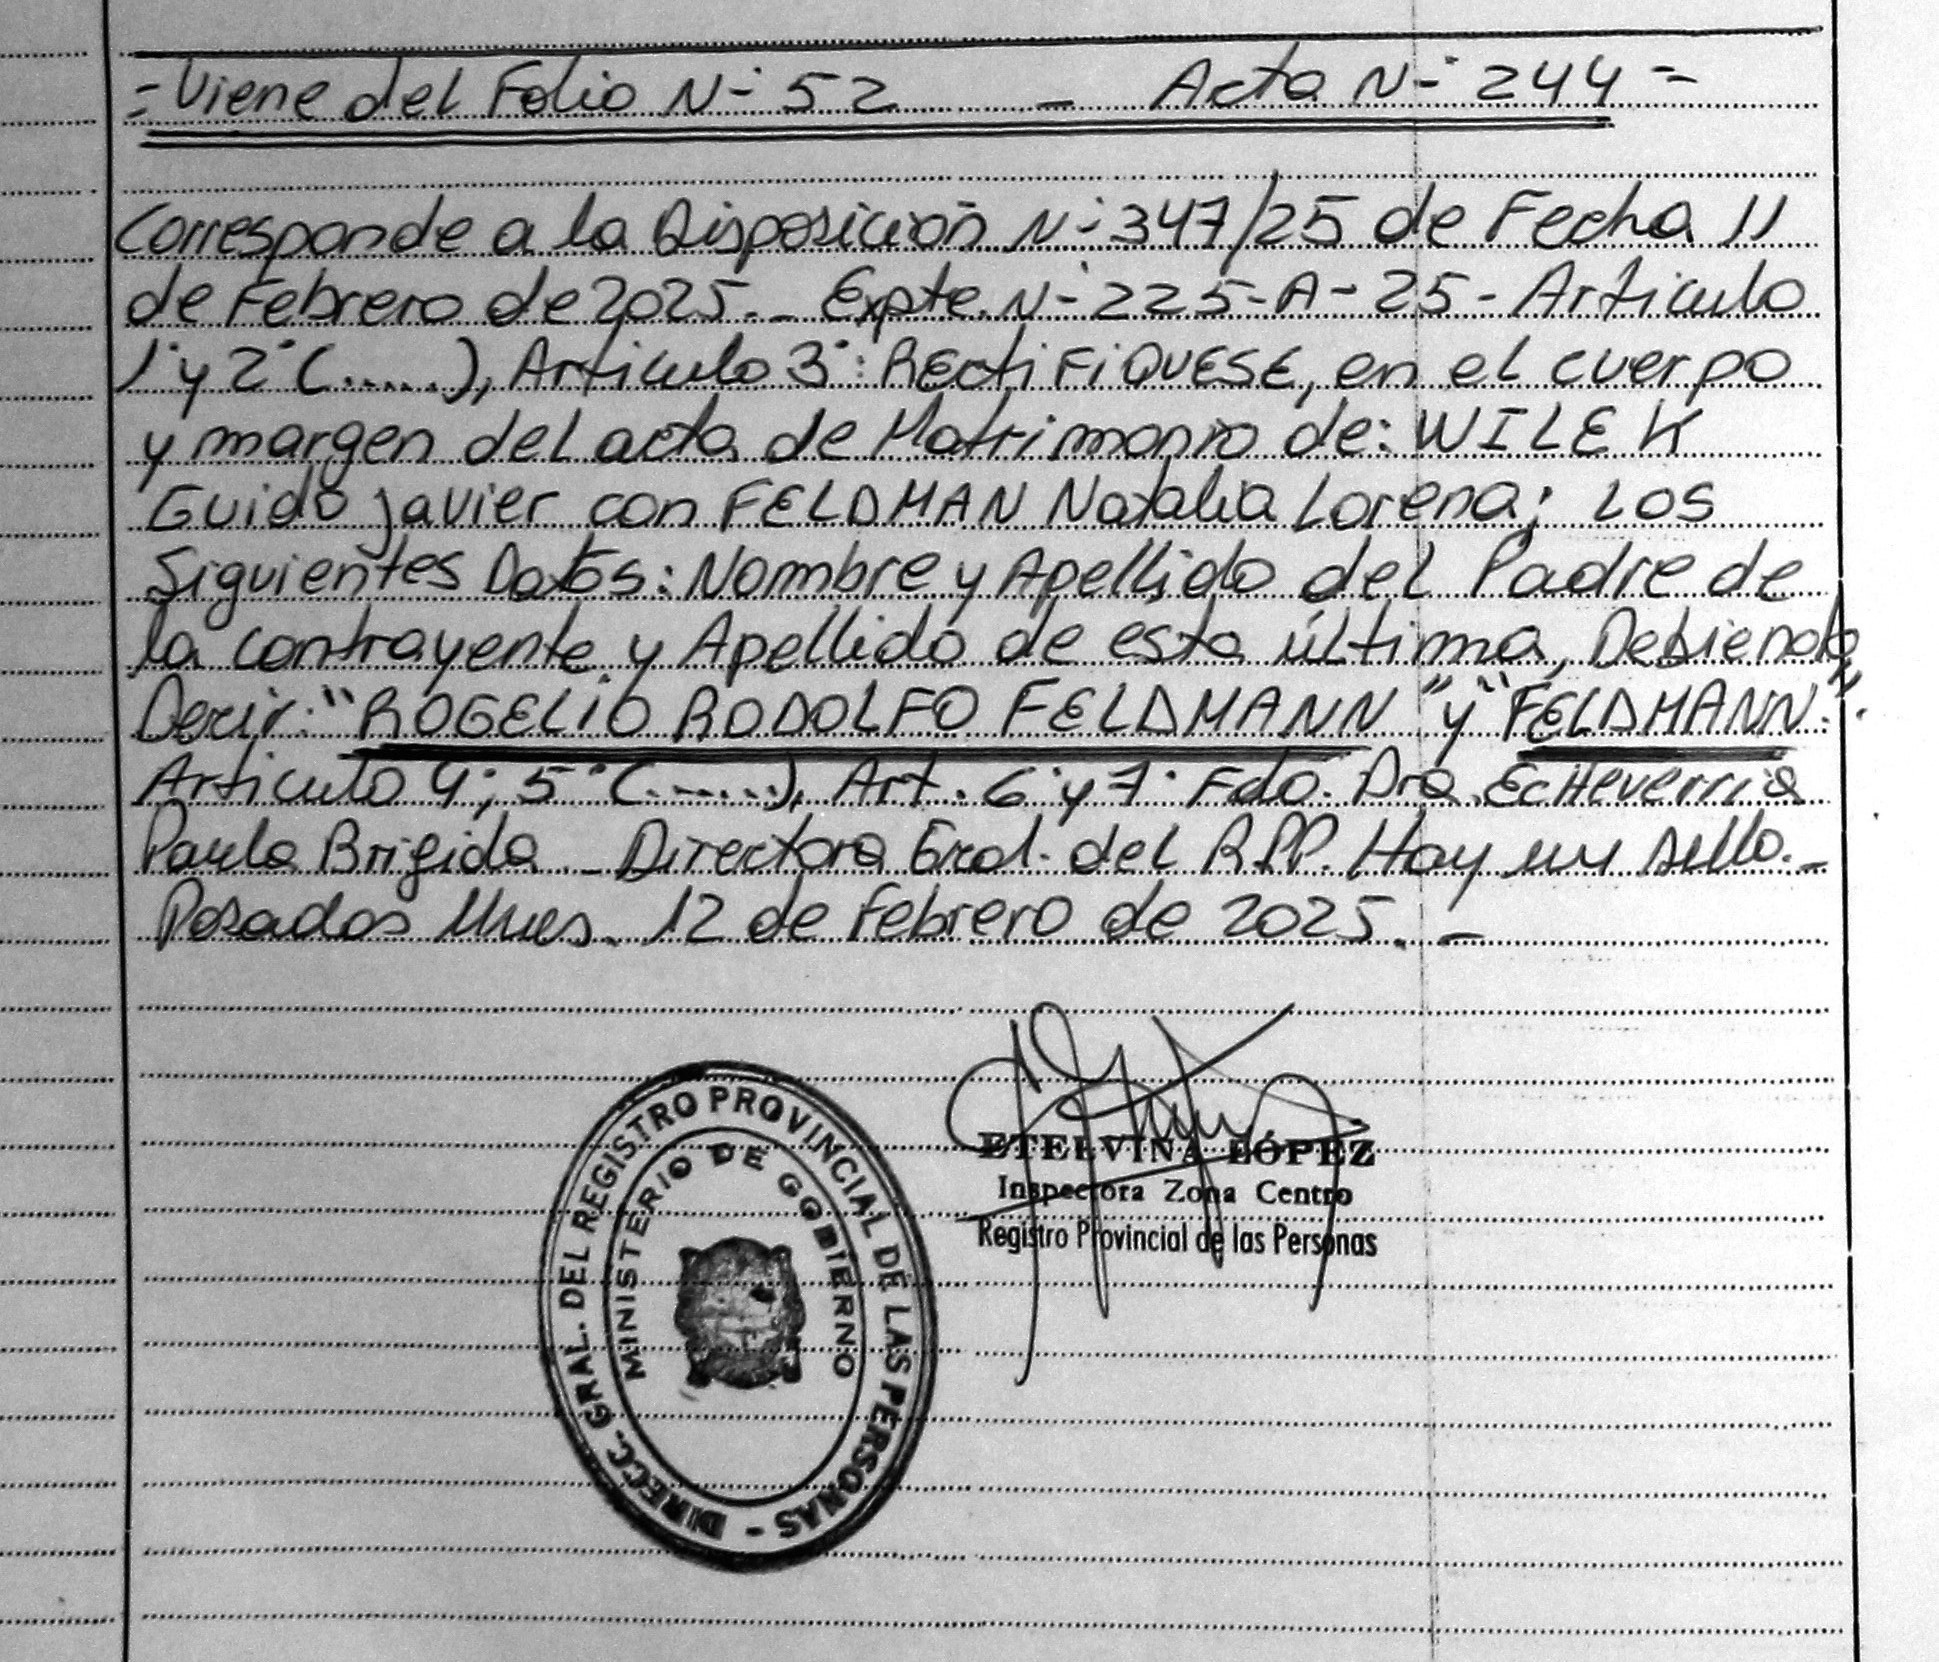 = Viene del Folio N° 52 - Acta N° 244 =
Corresponde a la Disposición N° 347/25 de Fecha 11
de Febrero de 2025.- Expte. N° 225-A-25- Articulo
1° y 2° (......), Articulo 3°: RECtiFiQUESE, en el cuerpo
y margen del acta de Matrimonio de: WILEK
Guido Javier con FELDMAN Natalia Lorena; Los
Siguientes Datos: Nombre y Apellido del Padre de
la contrayente y Apellido de esta última, Debiendo
Decir: "ROGELIO RODOLFO FELDMANN" y "FELDMANN".
Articulo 4°; 5° (......), Art. 6° y 7° Fdo. Dra. Echeverria
Paula Brigida - Directora Gral. del RPP. Hay un sello.-
Posadas Mnes. 12 de Febrero de 2025.-
DIRECC. GRAL. DEL REGISTRO PROVINCIAL DE LAS PERSONAS -
MINISTERIO DE GOBIERNO
ETELVINA LÓPEZ
Inspectora Zona Centro
Registro Provincial de las Personas